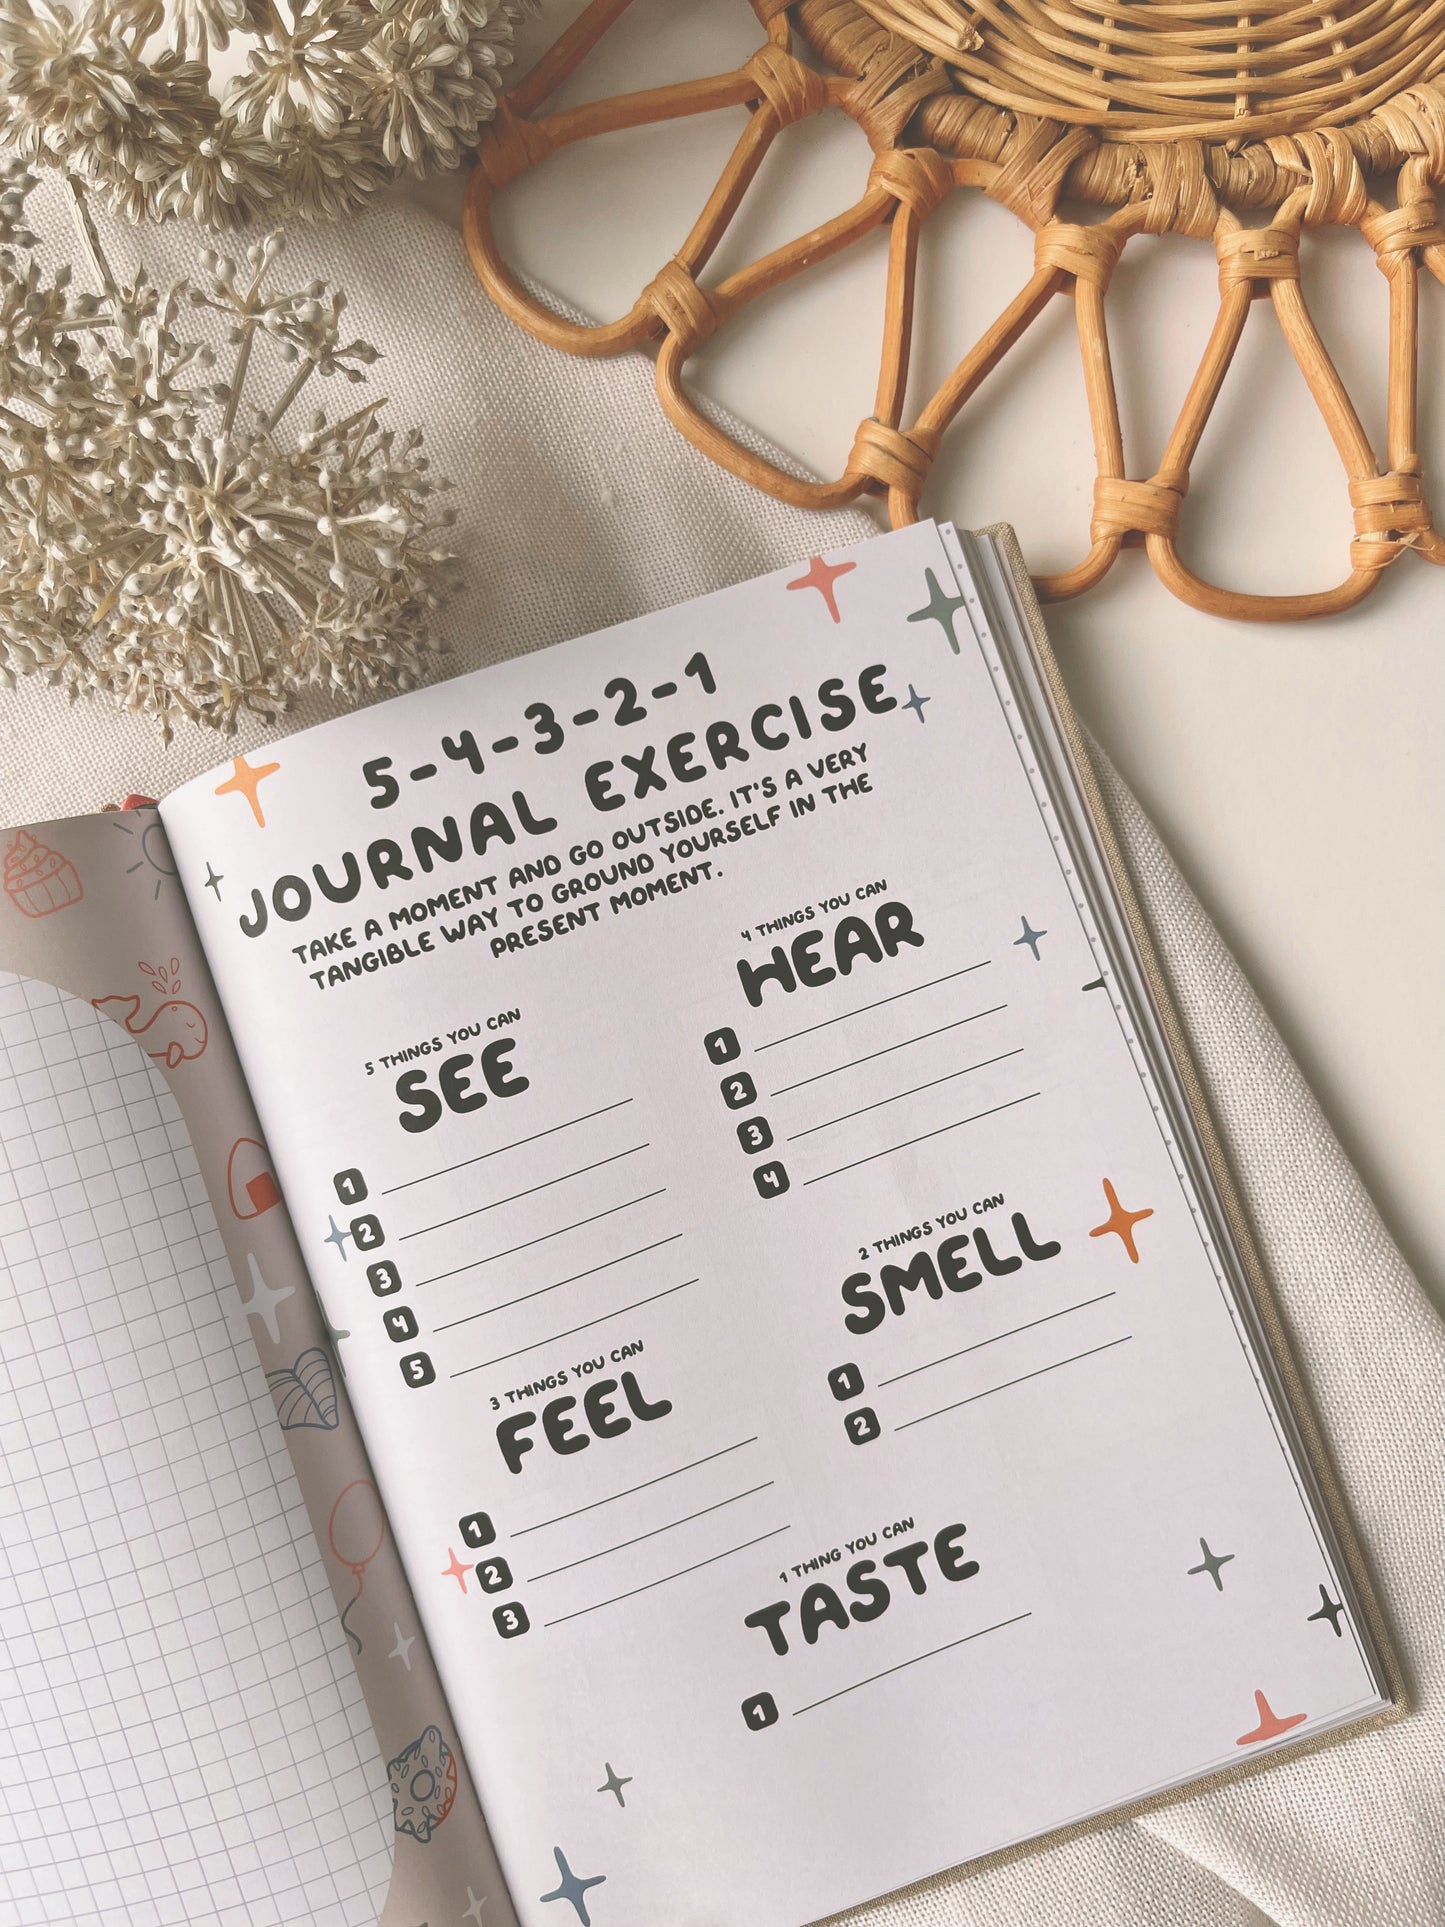 5-4-3-2-1
JOURNAL EXERCISE
TAKE A MOMENT AND GO OUTSIDE. IT'S A VERY
TANGIBLE WAY TO GROUND YOURSELF IN THE
PRESENT MOMENT.
5 THINGS YOU CAN
SEE
1
2
3
4
5
4 THINGS YOU CAN
HEAR
1
2
3
4
3 THINGS YOU CAN
FEEL
1
2
3
2 THINGS YOU CAN
SMELL
1
2
1 THING YOU CAN
TASTE
1